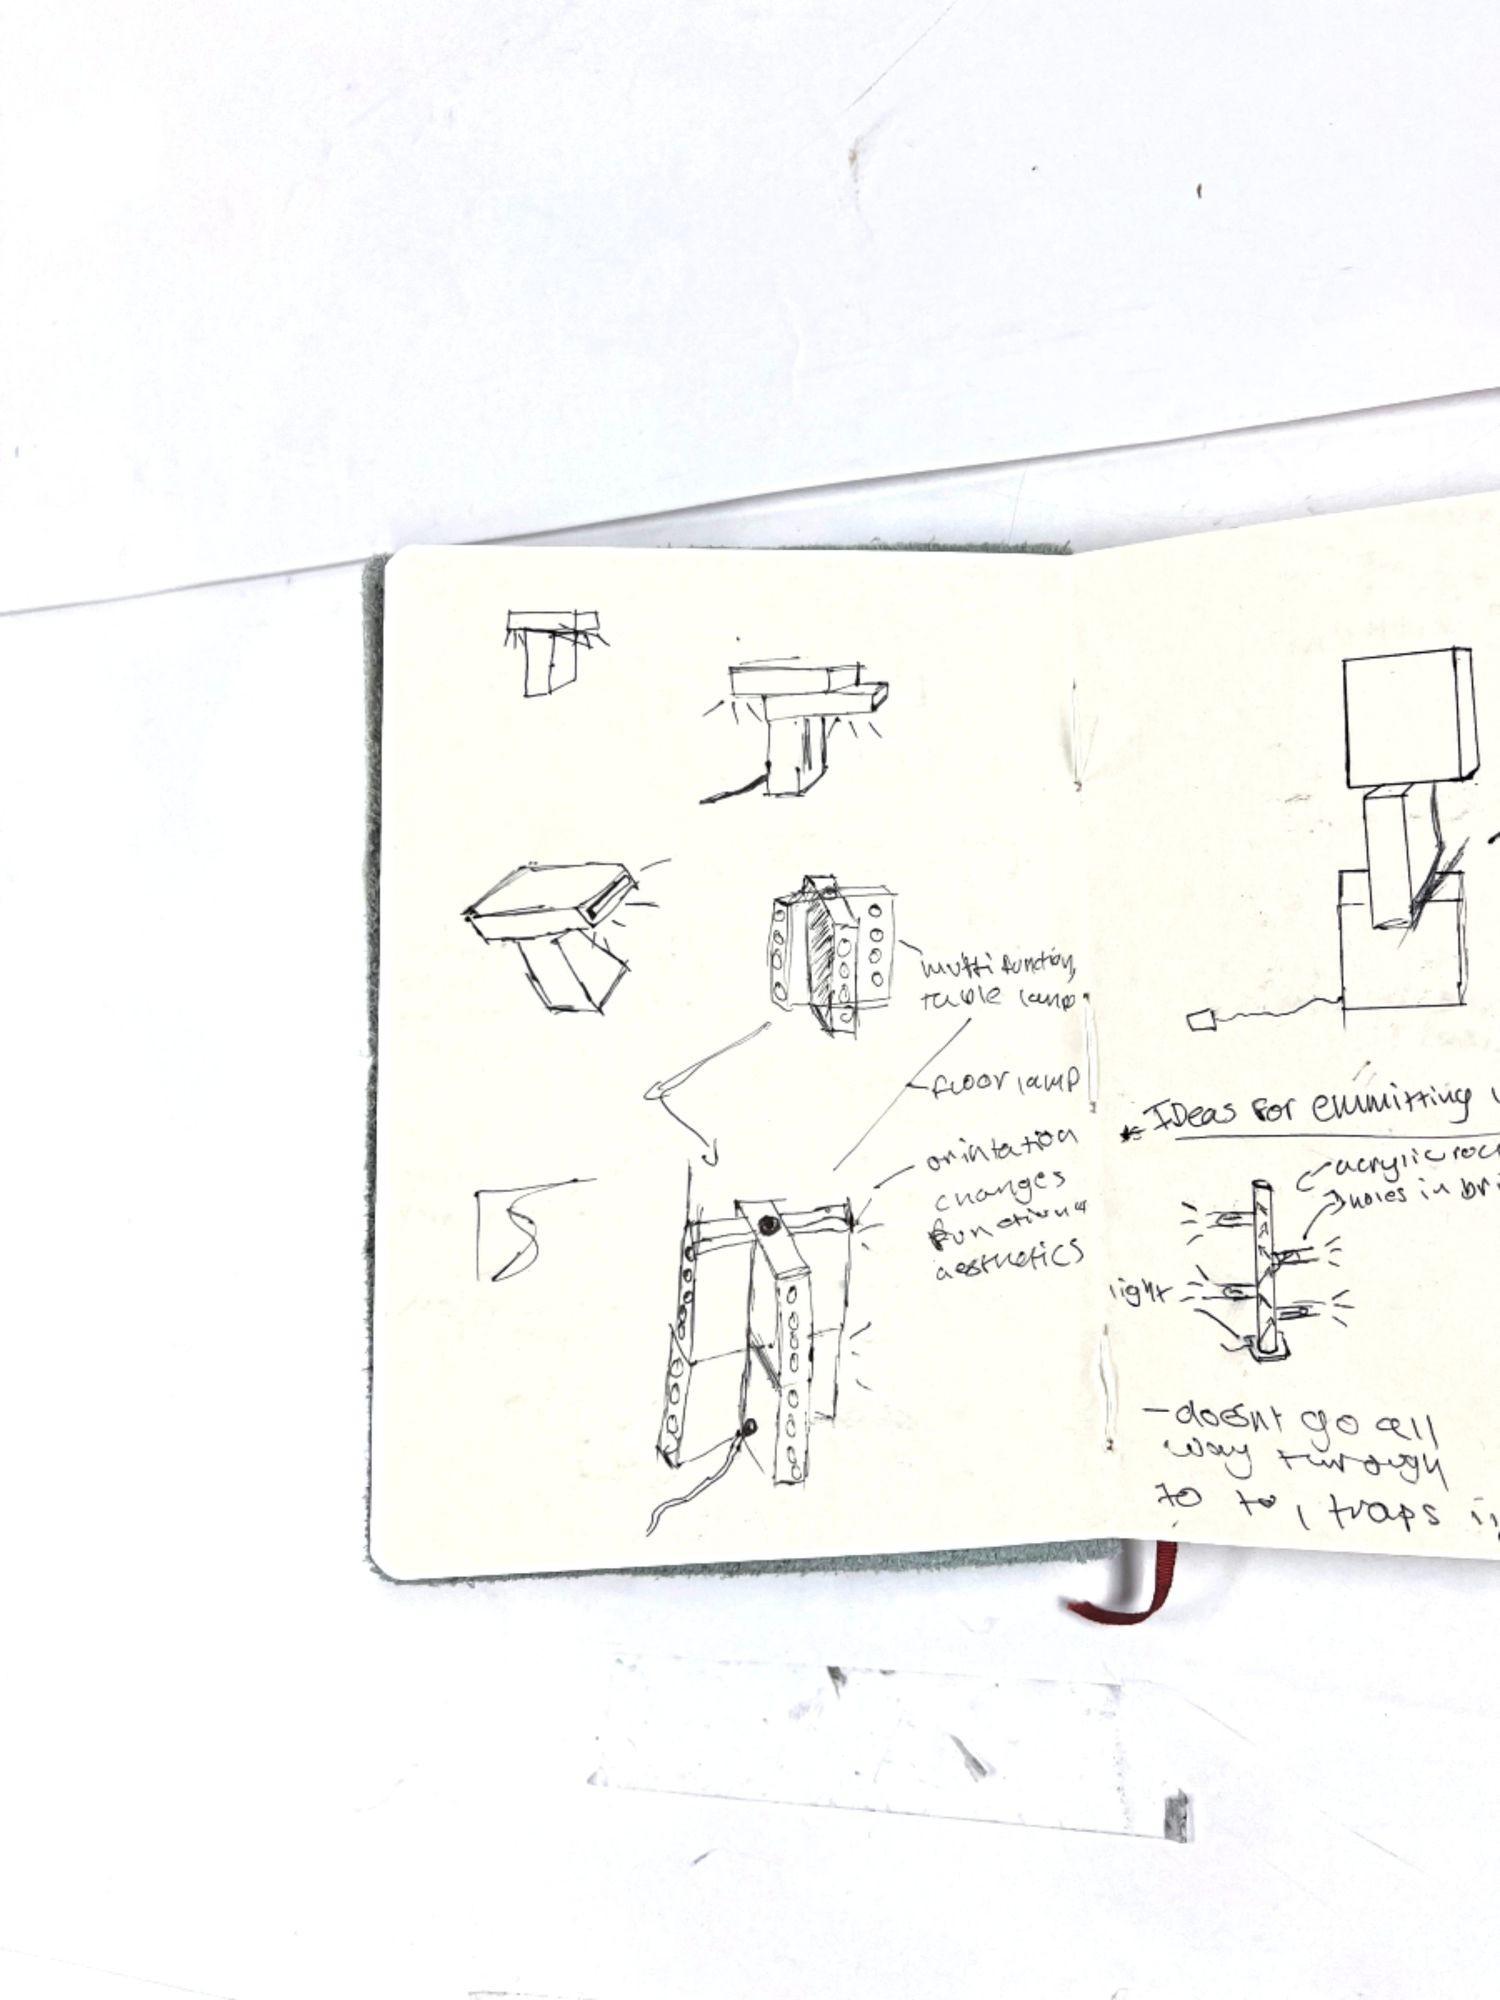 multi function,
table lamp
floor lamp
orintation
changes
function
aesthetics
IDeas for emmitting
acrylic
holes in
light
- doesnt go all
way through
to to, traps